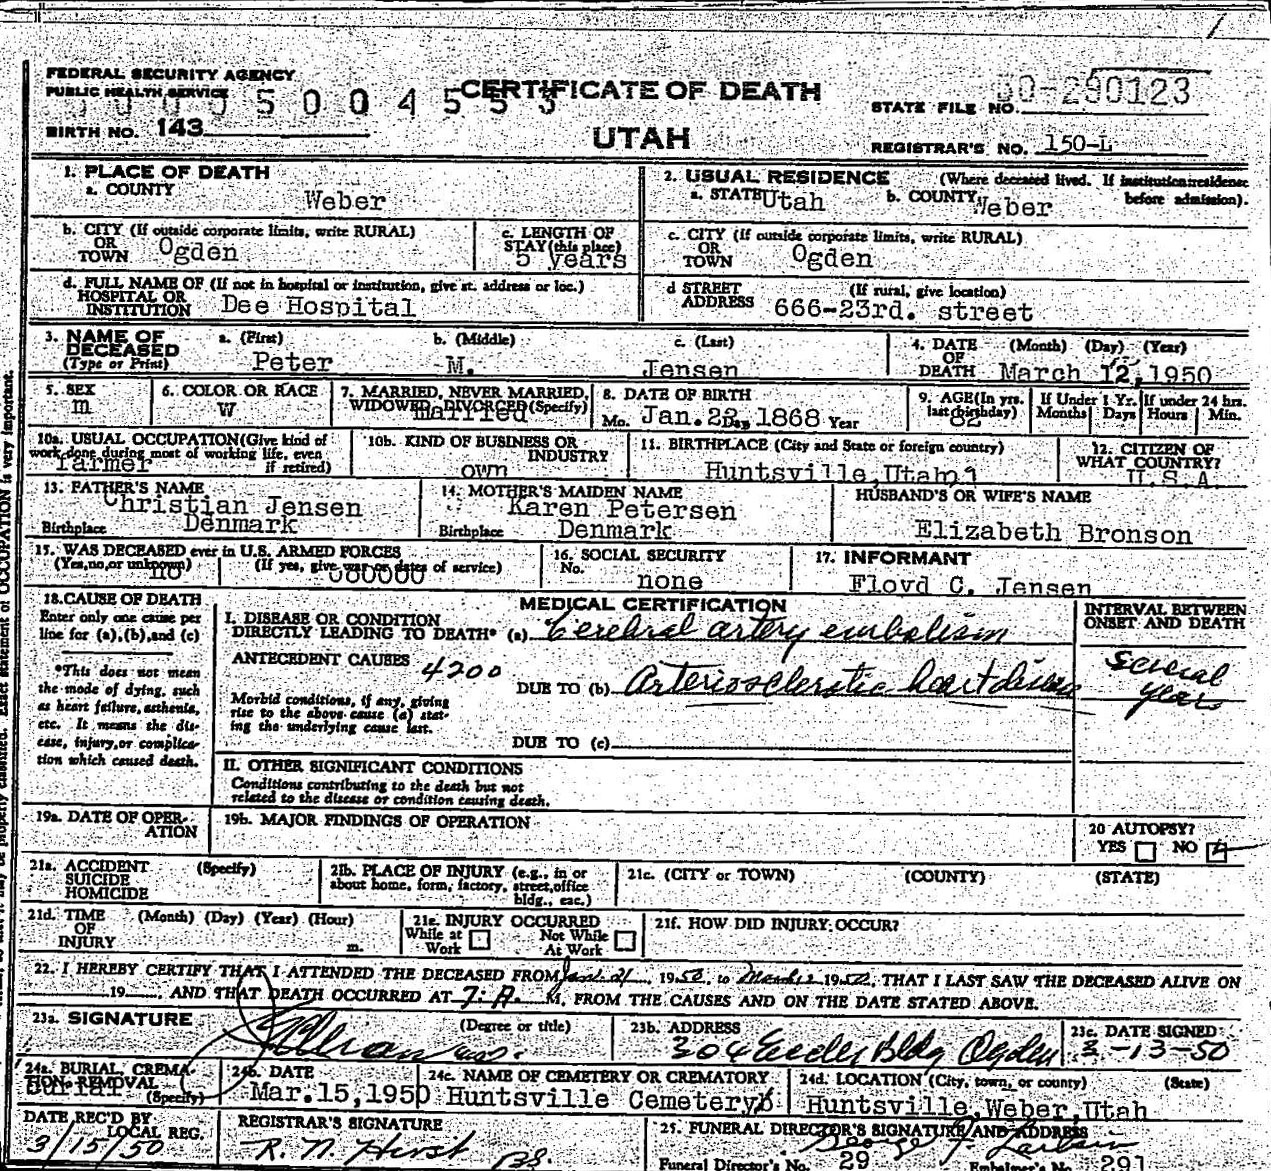 FEDERAL SECURITY AGENCY
PUBLIC HEALTH SERVICE
CERTIFICATE OF DEATH
STATE FILE NO. 50-290123
BIRTH NO. 143
UTAH
REGISTRAR'S NO. 150-L
1. PLACE OF DEATH
a. COUNTY Weber
2. USUAL RESIDENCE (Where deceased lived. If institution: residence before admission).
a. STATE Utah b. COUNTY Weber
b. CITY (If outside corporate limits, write RURAL) OR TOWN Ogden
c. LENGTH OF STAY (this place) 5 years
c. CITY (If outside corporate limits, write RURAL) OR TOWN Ogden
d. FULL NAME OF (If not in hospital or institution, give st. address or loc.) HOSPITAL OR INSTITUTION Dee Hospital
d STREET ADDRESS (If rural, give location) 666-23rd. street
3. NAME OF DECEASED (Type or Print) a. (First) Peter b. (Middle) M. c. (Last) Jensen
4. DATE OF DEATH (Month) (Day) (Year) March 12, 1950
5. SEX m
6. COLOR OR RACE W
7. MARRIED, NEVER MARRIED, WIDOWED, DIVORCED (Specify) married
8. DATE OF BIRTH Mo. Jan. 23, Day 1868 Year
9. AGE (In yrs. last birthday) 82
If Under 1 Yr. Months Days
If under 24 hrs. Hours Min.
10a. USUAL OCCUPATION (Give kind of work done during most of working life, even if retired) farmer
10b. KIND OF BUSINESS OR INDUSTRY own
11. BIRTHPLACE (City and State or foreign country) Huntsville, Utah
12. CITIZEN OF WHAT COUNTRY? U.S.A.
13. FATHER'S NAME Christian Jensen
Birthplace Denmark
14. MOTHER'S MAIDEN NAME Karen Petersen
Birthplace Denmark
HUSBAND'S OR WIFE'S NAME
Elizabeth Bronson
15. WAS DECEASED ever in U.S. ARMED FORCES
(Yes, no, or unknown) no (If yes, give war or dates of service)
16. SOCIAL SECURITY No. none
17. INFORMANT
Floyd C. Jensen
18. CAUSE OF DEATH
Enter only one cause per line for (a), (b), and (c)
*This does not mean the mode of dying, such as heart failure, asthenia, etc. It means the disease, injury, or complication which caused death.
MEDICAL CERTIFICATION
INTERVAL BETWEEN ONSET AND DEATH
I. DISEASE OR CONDITION DIRECTLY LEADING TO DEATH* (a) Cerebral artery embolism
ANTECEDENT CAUSES 4200
DUE TO (b) Arteriosclerotic heart disease
several years
Morbid conditions, if any, giving rise to the above cause (a) stating the underlying cause last.
DUE TO (c)
II. OTHER SIGNIFICANT CONDITIONS
Conditions contributing to the death but not related to the disease or condition causing death.
19a. DATE OF OPERATION
19b. MAJOR FINDINGS OF OPERATION
20 AUTOPSY?
YES NO
21a. ACCIDENT SUICIDE HOMICIDE (Specify)
21b. PLACE OF INJURY (e.g., in or about home, form, factory, street, office bldg., eac.)
21c. (CITY or TOWN) (COUNTY) (STATE)
21d. TIME OF INJURY (Month) (Day) (Year) (Hour) m.
21e. INJURY OCCURRED
While at Work Not While At Work
21f. HOW DID INJURY OCCUR?
22. I HEREBY CERTIFY THAT I ATTENDED THE DECEASED FROM Jan. 21, 1950, to March 12 1950, THAT I LAST SAW THE DECEASED ALIVE ON
19 , AND THAT DEATH OCCURRED AT 7: A. M, FROM THE CAUSES AND ON THE DATE STATED ABOVE.
23a. SIGNATURE (Degree or title)
23b. ADDRESS
304 Eccles Bldg Ogden
23c. DATE SIGNED
3-13-50
24a. BURIAL, CREMATION, REMOVAL (Specify) Burial
24b. DATE
Mar. 15, 1950
24c. NAME OF CEMETERY OR CREMATORY
Huntsville Cemetery
24d. LOCATION (City, town, or county) (State)
Huntsville, Weber, Utah
DATE REC'D BY LOCAL REG.
3/15/50
REGISTRAR'S SIGNATURE
R. N. Hirst
25. FUNERAL DIRECTOR'S SIGNATURE AND ADDRESS
George Larkin
Funeral Director's No. 29 Embalmer's No. 291